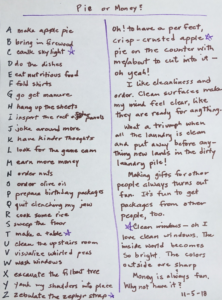 Pie or Money?
A make apple pie
B bring in firewood
C caulk skylight
D do the dishes
E eat nutritious food
F fold shirts
G go get manure
H hang up the sheets
I inspect the roof
J joke around more
K have kinder thoughts
L look for the game cam
M earn more money
N order nuts
O order olive oil
P prepare birthday packages
Q quit clenching my jaw
R cook some rice
S sweep the floor
T make a table
U clean the upstairs room
V visualize weird peas
W wash windows
X excavate the filbert tree
Y yank my shoulders into place
Z zebulate the zephyr strap
Oh! to have a perfect,
crisp-crusted apple
pie on the counter with
me about to cut into it -
oh yeah!
I like cleanliness and
order. Clean surfaces make
my mind feel clear, like
they are ready for anything.
What a triumph when
all the laundry is clean
and put away before any-
thing new lands in the dirty
laundry pile!
Making gifts for other
people always turns out
fun. It's fun to get
packages from other
people, too.
Clean windows - oh I
love clean windows. The
inside world becomes
so bright. The colors
outside are sharp
Money is always fun.
Why not have it?
11-5-18